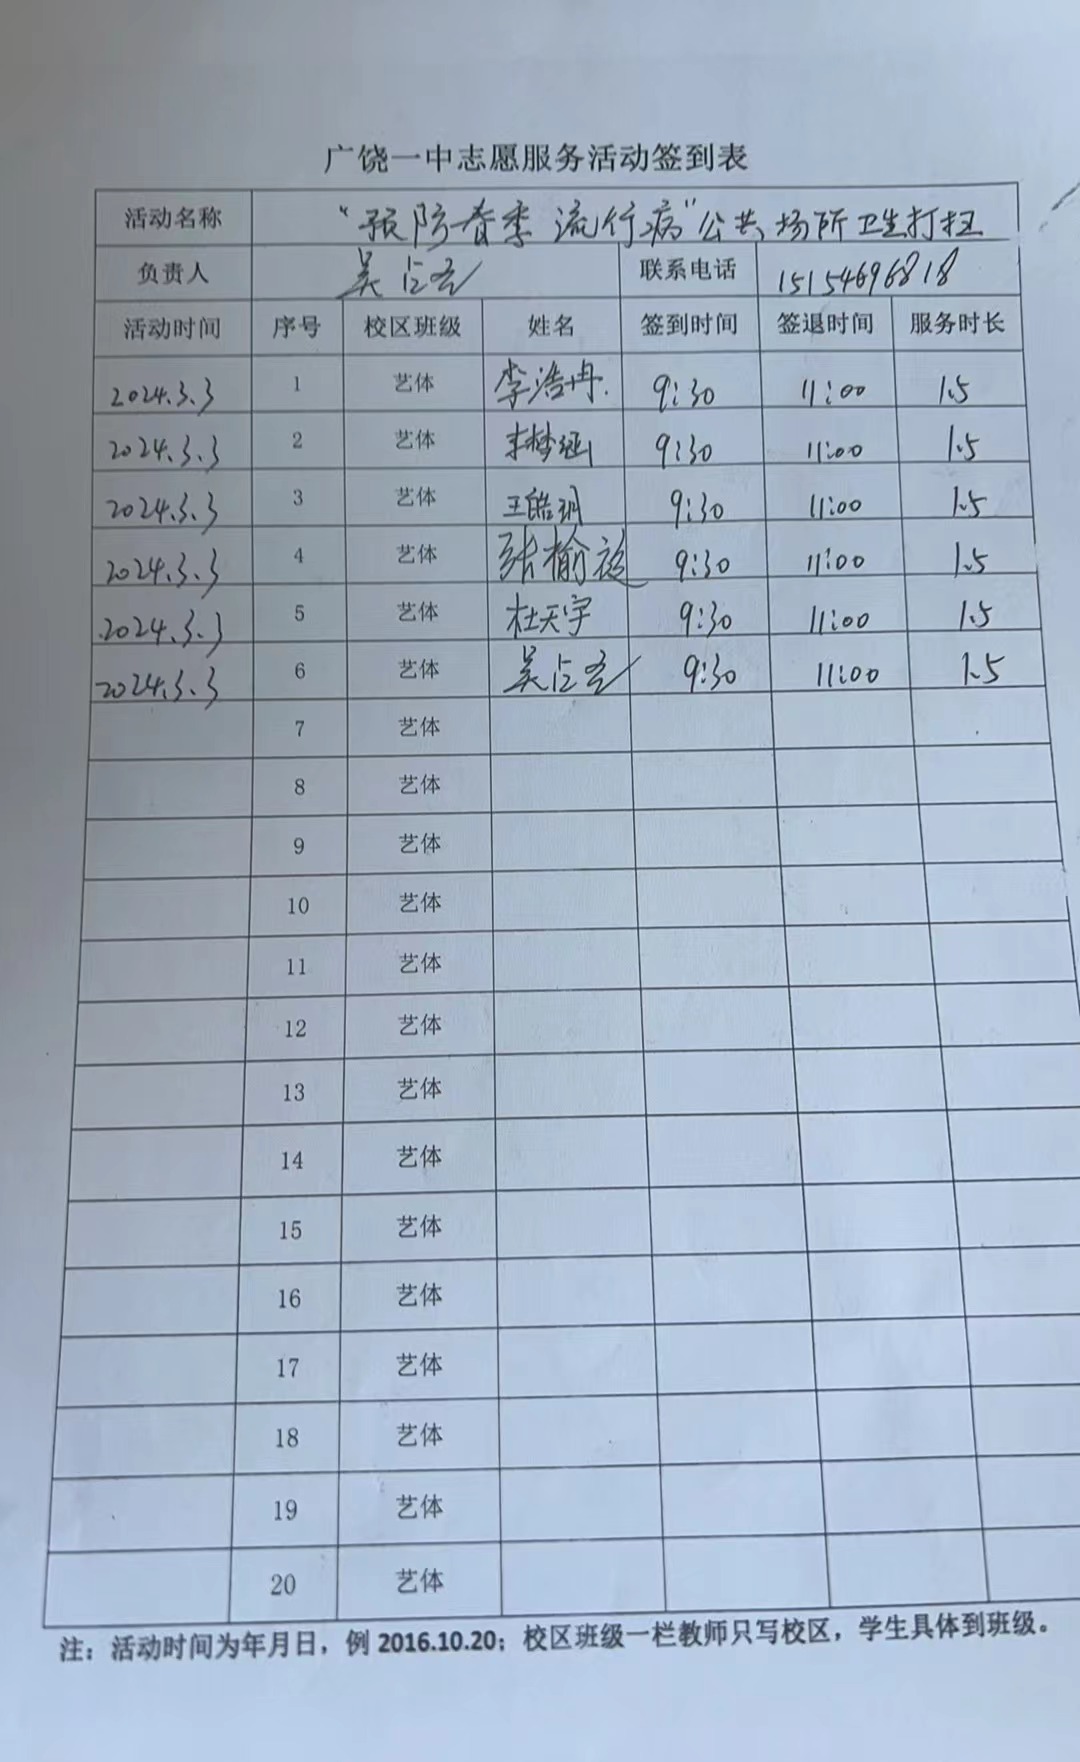 广饶一中志愿服务活动签到表
活动名称 “预防春季流行病”公共场所卫生打扫
负责人 吴 联系电话 15154696818
活动时间 序号 校区班级 姓名 签到时间 签退时间 服务时长
2024.3.3 1 艺体 李浩冉 9:30 11:00 1.5
2024.3.3 2 艺体 李梦涵 9:30 11:00 1.5
2024.3.3 3 艺体 王皓玥 9:30 11:00 1.5
2024.3.3 4 艺体 张榆 9:30 11:00 1.5
2024.3.3 5 艺体 杜天宇 9:30 11:00 1.5
2024.3.3 6 艺体 吴 9:30 11:00 1.5
7 艺体
8 艺体
9 艺体
10 艺体
11 艺体
12 艺体
13 艺体
14 艺体
15 艺体
16 艺体
17 艺体
18 艺体
19 艺体
20 艺体
注：活动时间为年月日，例 2016.10.20；校区班级一栏教师只写校区，学生具体到班级。